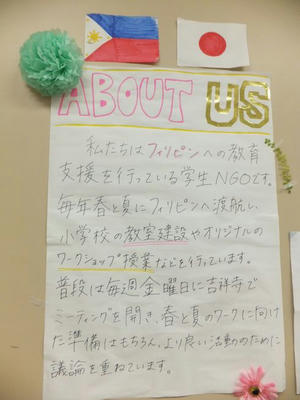 ABOUT US
私たちはフィリピンへの教育
支援を行っている学生NGOです。
毎年春と夏にフィリピンへ渡航い
小学校の教室建設やオリジナルの
ワークショップ授業などを行っています。
普段は毎週金曜日に吉祥寺で
ミーティングを開き、春と夏のワークに向け
た準備はもちろん、より良い活動のために
議論を重ねています。